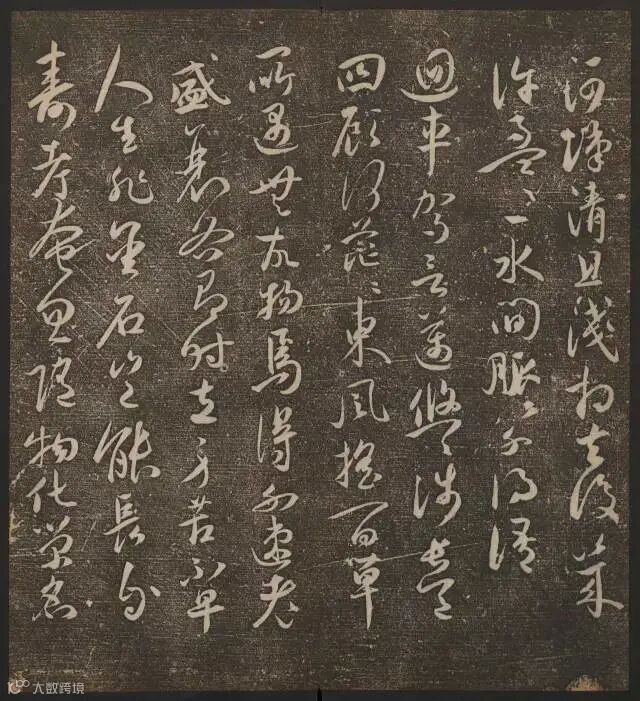 河漢清且淺相去復幾
許盈〻一水間脈〻不得語
迴車駕言邁悠〻涉長道
四顧何茫〻東風搖百草
所遇無故物焉得不速老
盛衰各有時立身苦不早
人生非金石豈能長
壽考奄忽隨物化榮名
大数跨境